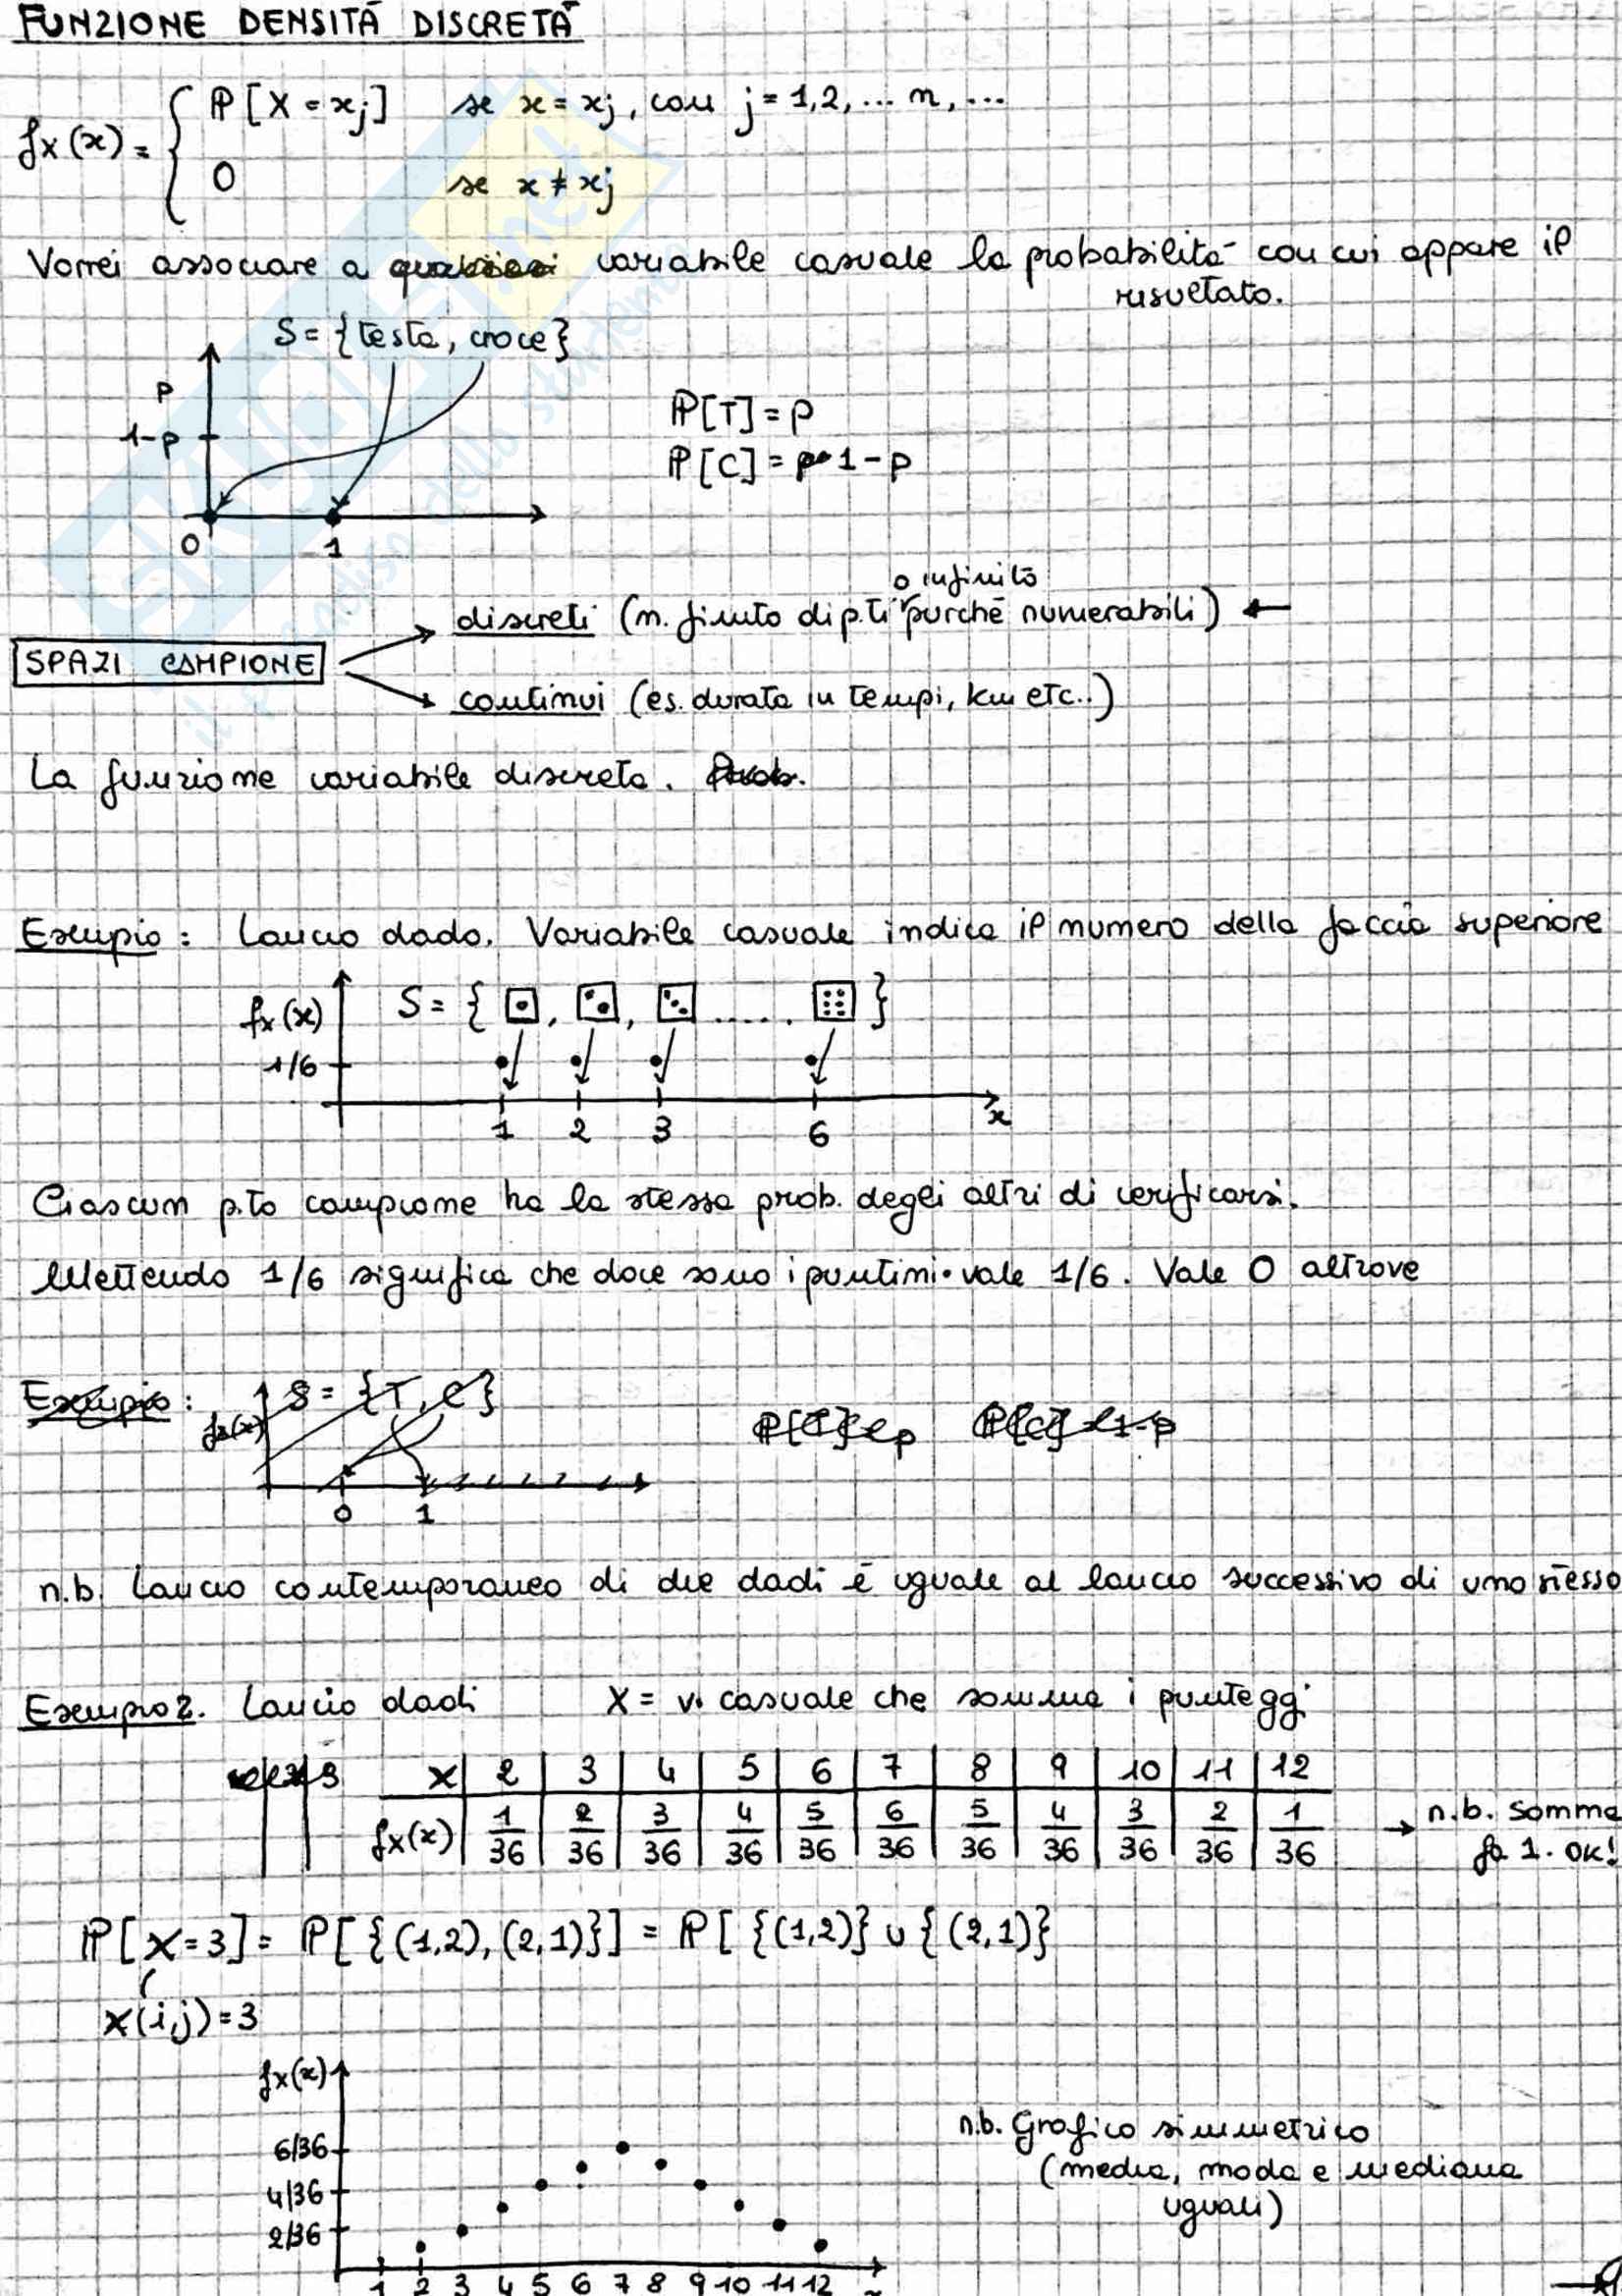 FUNZIONE DENSITÀ DISCRETA
fx(x) = { P[X = xj] se x = xj, con j = 1,2, ... n, ...
0 se x ≠ xj
Vorrei associare a variabile casuale la probabilità con cui appare il
risultato.
S = {testa, croce}
p
1-p
P[T] = p
P[C] = 1-p
0 1
o infinito
discreti (n. finito di p.ti purché numerabili) ←
SPAZI CAMPIONE
continui (es. durata in tempi, km etc..)
La funzione variabile discreta. Prob.
Esempio: Lancio dado. Variabile casuale indica il numero della faccia superiore
fx(x) S = { ⚀, ⚁, ⚂ ..... ⚅ }
1/6
1 2 3 6 x
Ciascun p.to campione ha la stessa prob. degli altri di verificarsi.
Mettendo 1/6 significa che dove sono i puntini • vale 1/6. Vale 0 altrove
Esempio: S = {T, C} P[T] = p P[C] = 1-p
fx(x)
0 1
n.b. Lancio contemporaneo di due dadi è uguale al lancio successivo di uno stesso
Esempio 2. Lancio dadi X = v. casuale che somma i punteggi
x | 2 | 3 | 4 | 5 | 6 | 7 | 8 | 9 | 10 | 11 | 12
fx(x) | 1/36 | 2/36 | 3/36 | 4/36 | 5/36 | 6/36 | 5/36 | 4/36 | 3/36 | 2/36 | 1/36 → n.b. somma
fa 1. OK!
P[X=3] = P[{(1,2), (2,1)}] = P[{(1,2)} ∪ {(2,1)}
X(i,j) = 3
fx(x)
6/36
n.b. Grafico simmetrico
(media, moda e mediana
4/36
uguali)
2/36
1 2 3 4 5 6 7 8 9 10 11 12